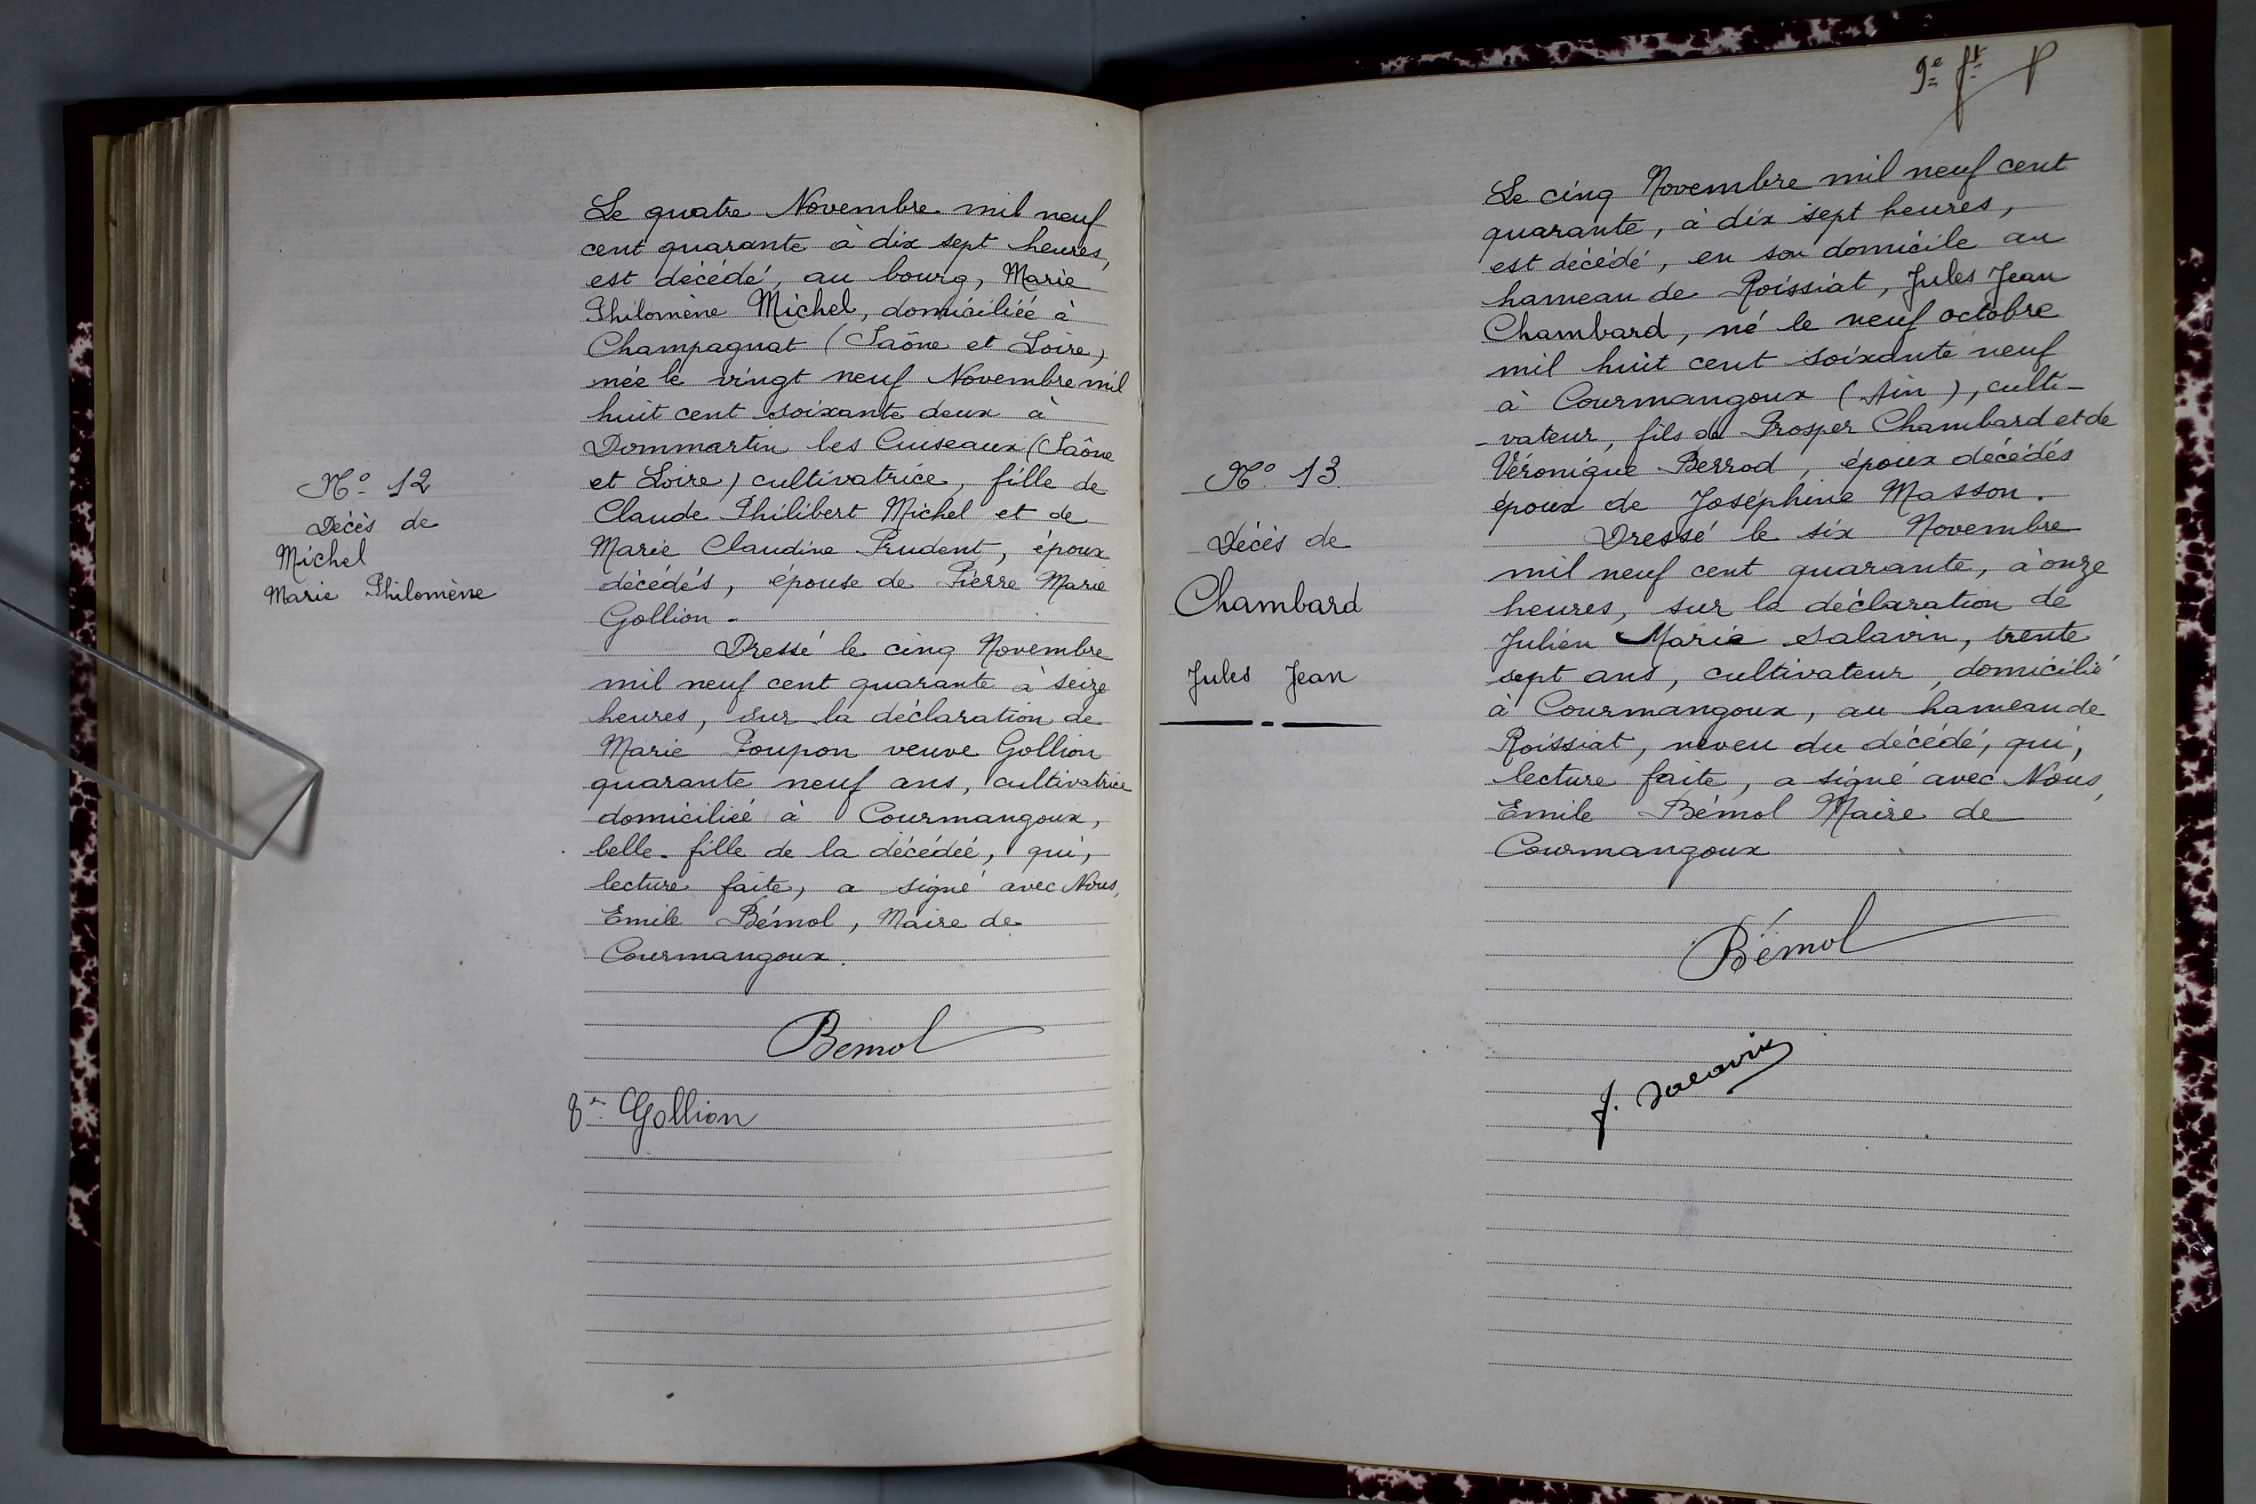 Nº 12
Décès de
Michel
Marie Philomène
Le quatre Novembre mil neuf
cent quarante à dix sept heures,
est décédé, au bourg, Marie
Philomène Michel, domiciliée à
Champagnat (Saône et Loire)
née le vingt neuf Novembre mil
huit cent soixante deux à
Dommartin les Cuiseaux (Saône
et Loire) cultivatrice, fille de
Claude Philibert Michel et de
Marie Claudine Prudent, époux
décédés, épouse de Pierre Marie
Gollion.
Dressé le cinq Novembre
mil neuf cent quarante à seize
heures, sur la déclaration de
Marie Poupon veuve Gollion
quarante neuf ans, cultivatrice
domiciliée à Courmangoux,
belle-fille de la décédée, qui,
lecture faite, a signé avec Nous,
Emile Bémol, Maire de
Courmangoux.
Bémol
Gollion
9e ft
Nº 13
Décès de
Chambard
Jules Jean
Le cinq Novembre mil neuf cent
quarante, à dix sept heures,
est décédé, en son domicile au
hameau de Roissiat, Jules Jean
Chambard, né le neuf octobre
mil huit cent soixante neuf
à Courmangoux (Ain), culti-
-vateur, fils de Prosper Chambard et de
Véronique Berrod, époux décédés
époux de Joséphine Masson.
Dressé le six Novembre
mil neuf cent quarante, à onze
heures, sur la déclaration de
Julien Marie Salavin, trente
sept ans, cultivateur, domicilié
à Courmangoux, au hameau de
Roissiat, neveu du décédé, qui,
lecture faite, a signé avec Nous,
Emile Bémol Maire de
Courmangoux
Bémol
J. Salavin